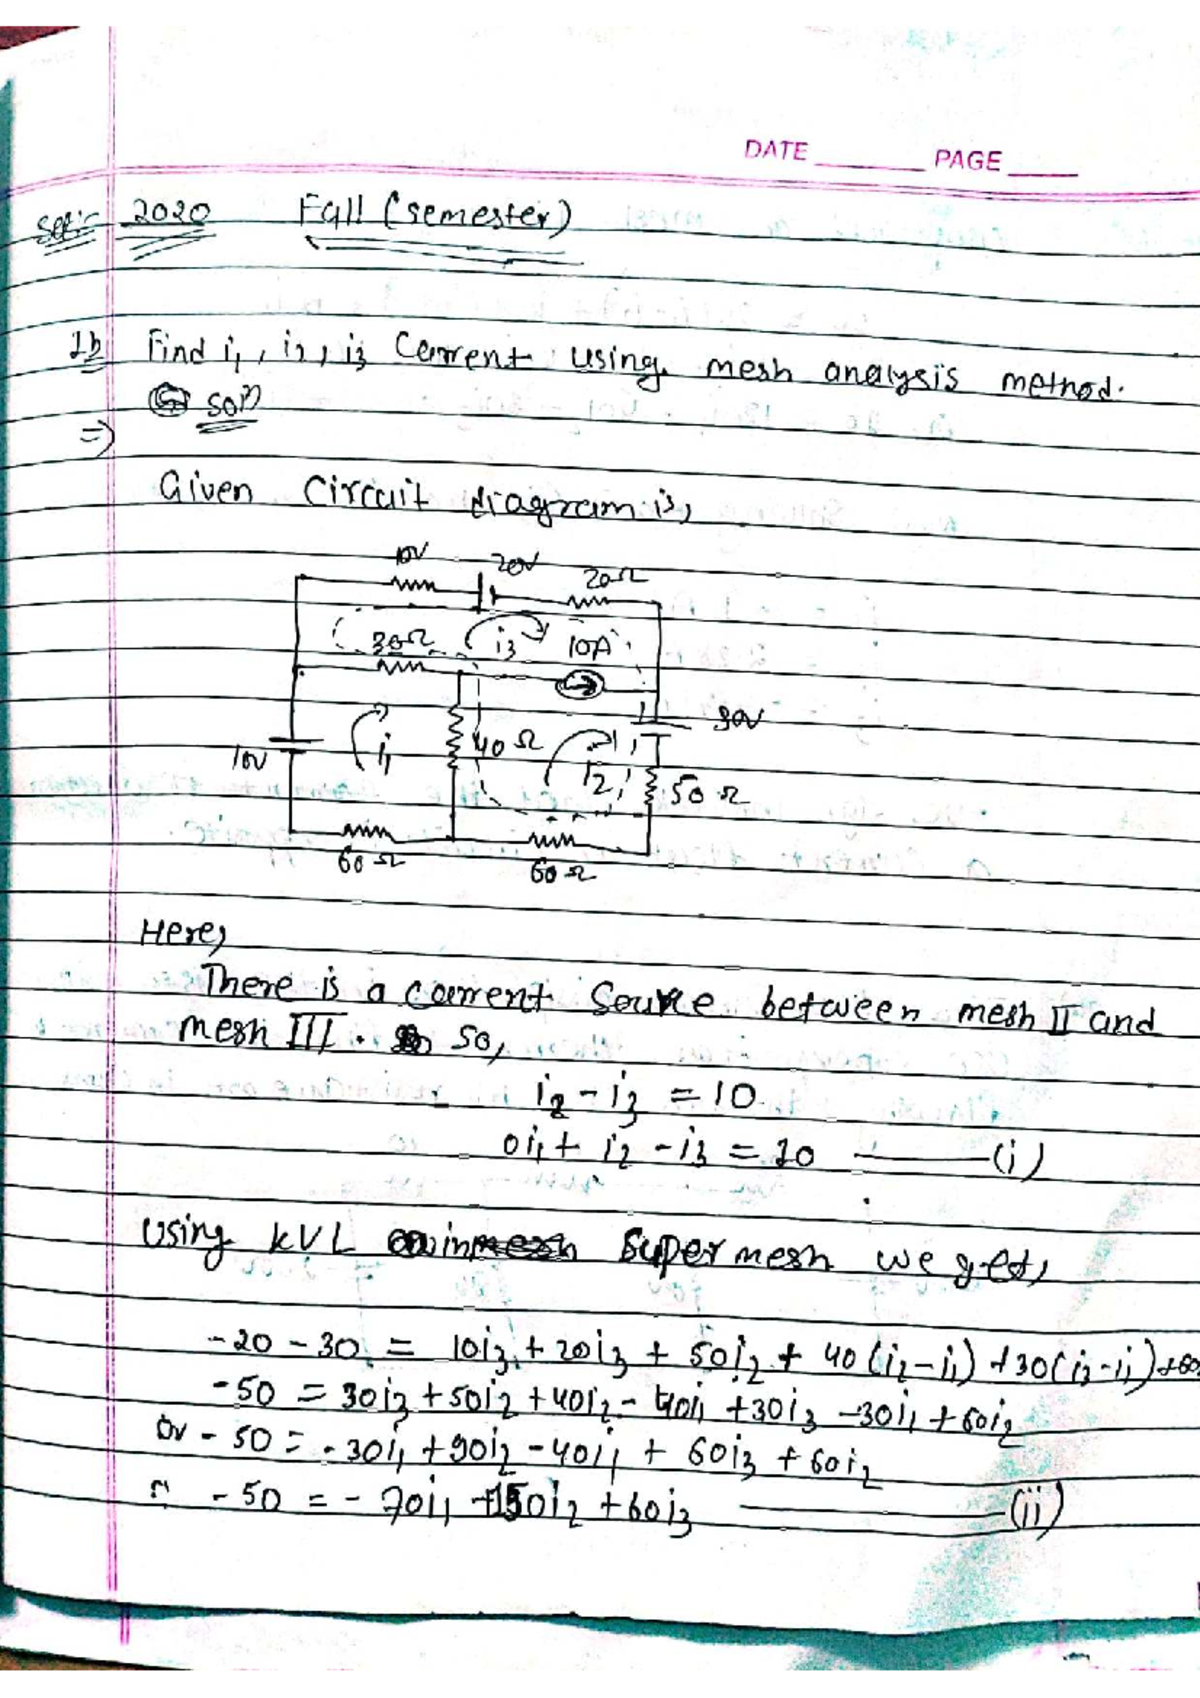 DATE ____ PAGE ____
2020 Fall (semester)
1b Find i1, i2, i3 Current using mesh analysis method.
=) Solⁿ
Given Circuit diagram is,
10V 20V 20Ω
30Ω i3 10A
30V
10V i1 40Ω i2 50Ω
60Ω 60Ω
Here,
There is a current Source between mesh II and
mesh III. So,
i2 - i3 = 10
0i1 + i2 - i3 = 10 ——— (i)
Using KVL in Supermesh we get,
-20 - 30 = 10i3 + 20i3 + 50i2 + 40(i2-i1) + 30(i3-i1) + 60
-50 = 30i3 + 50i2 + 40i2 - 40i1 + 30i3 - 30i1 + 60i2
Or - 50 = - 30i1 + 90i2 - 40i1 + 60i3 + 60i2
- 50 = - 70i1 + 150i2 + 60i3 ——— (ii)